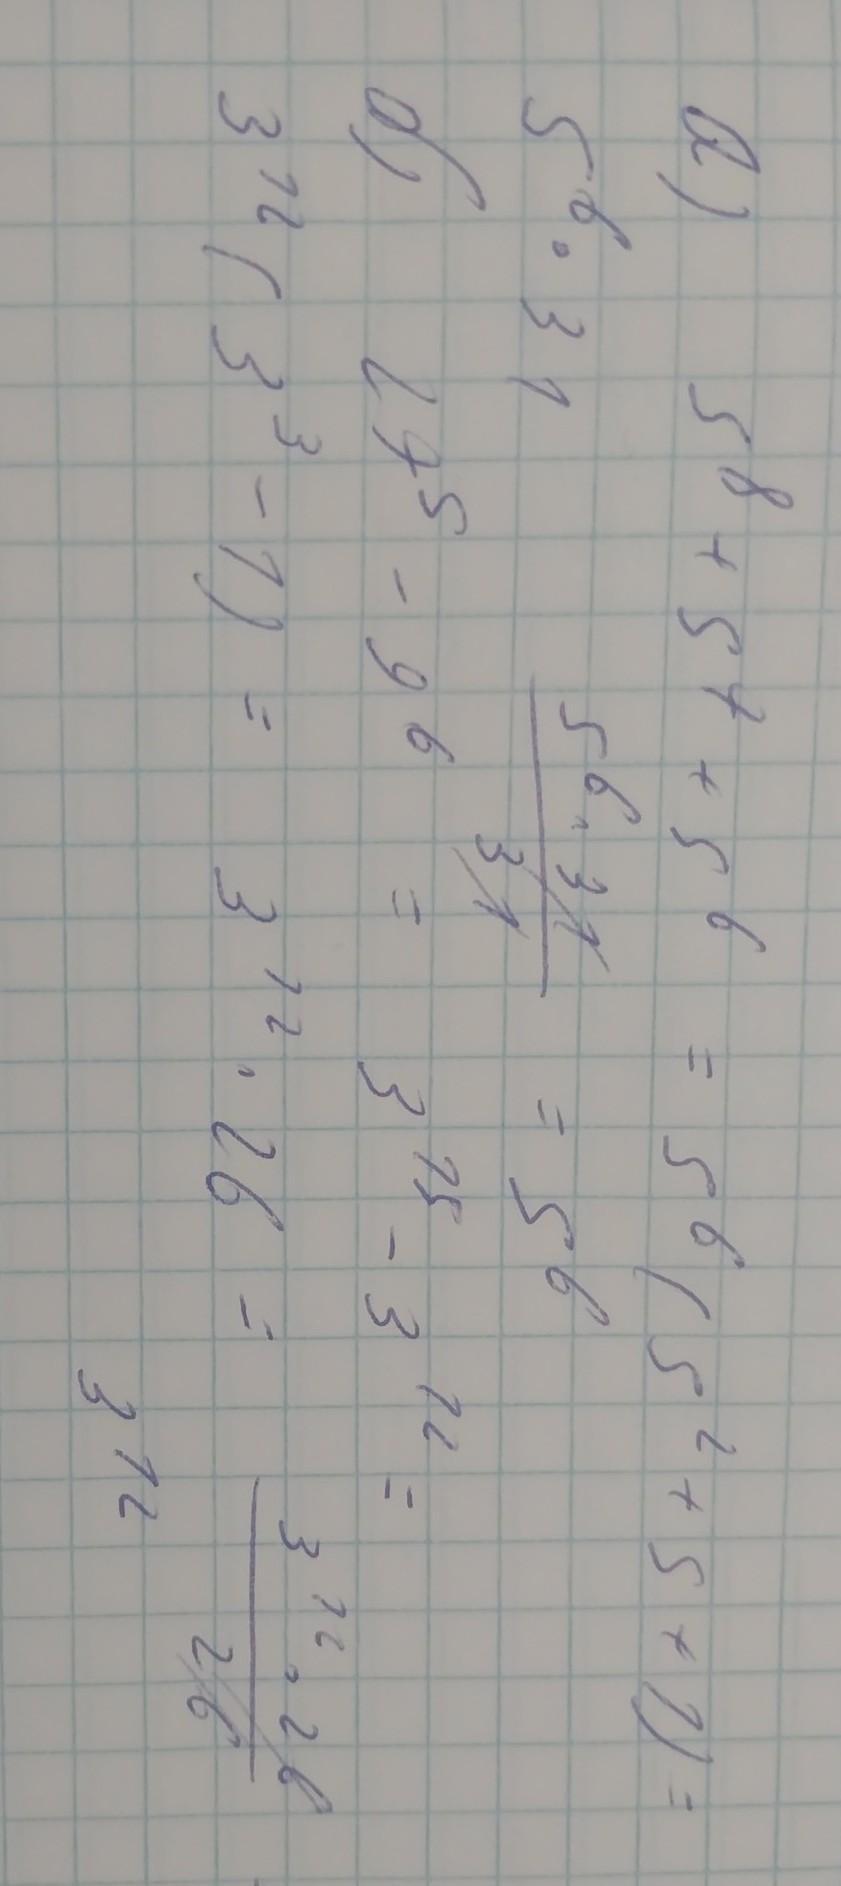 а) 5⁸ + 5⁷ + 5⁶ = 5⁶(5² + 5 + 1) =
5⁶ · 31     5⁶ · 31 / 31 = 5⁶
б) 27⁵ - 9⁶ = 3¹⁵ - 3¹² =
3¹²(3³ - 1) = 3¹² · 26 = 3¹² · 26 / 26
3¹²